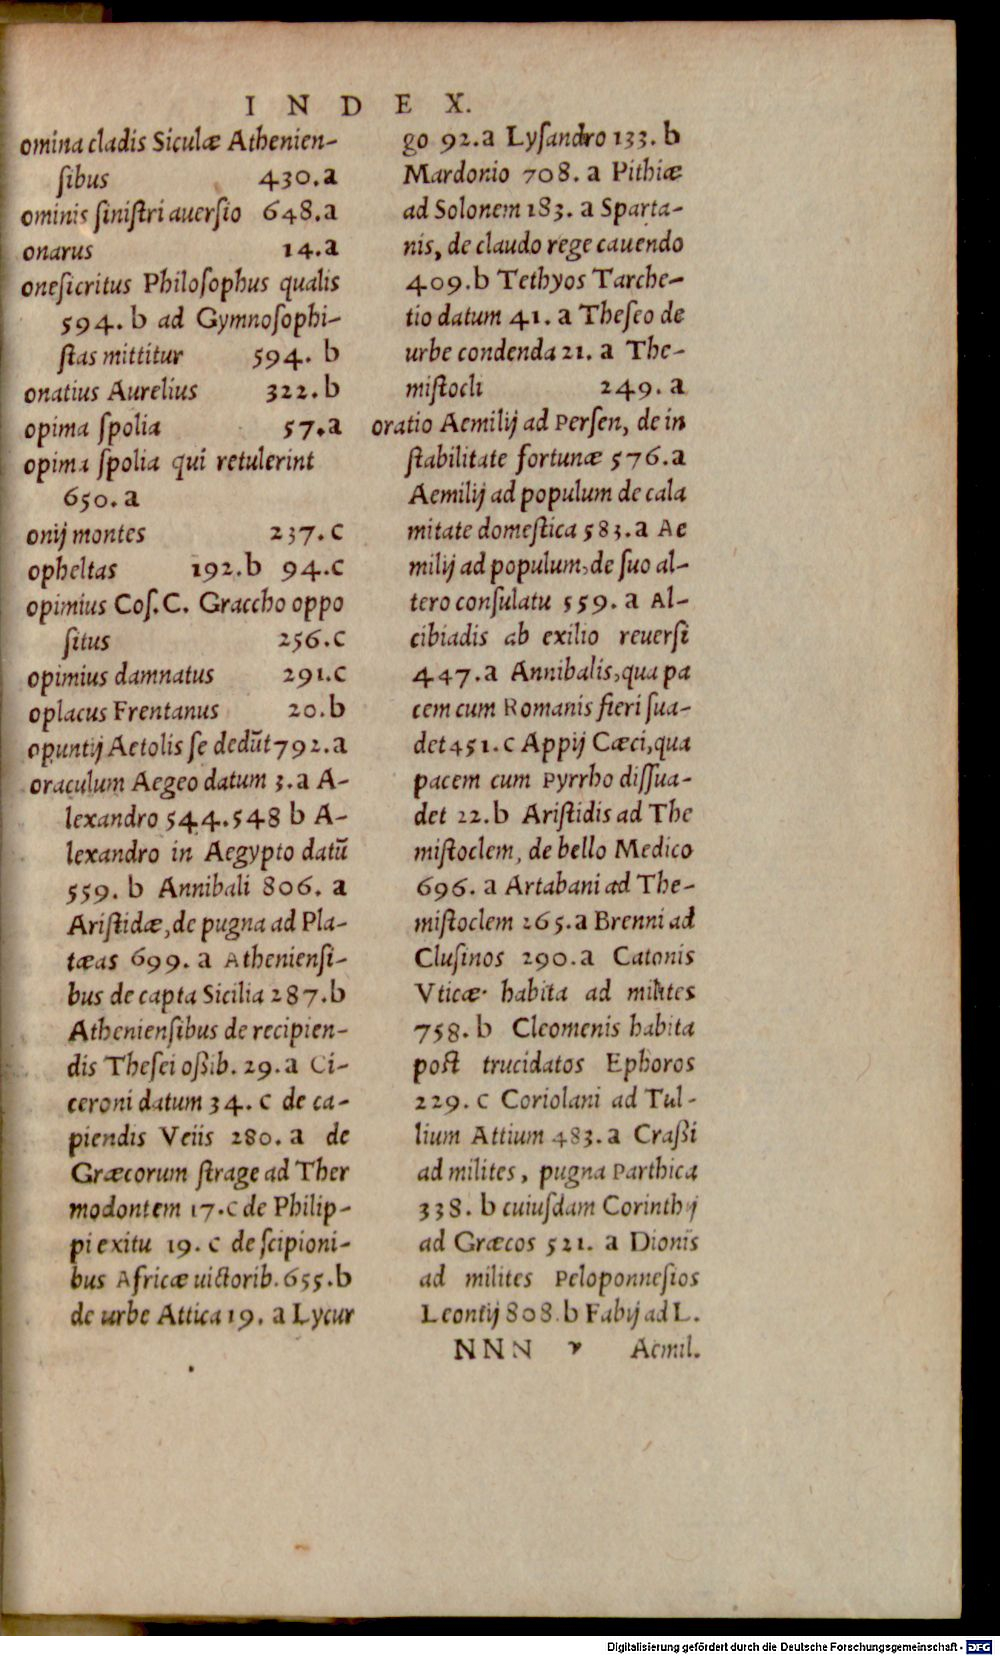 INDEX.
omina cladis Siculæ Athenien-
ſibus 430.a
ominis ſiniſtri auerſio 648.a
onarus 14.a
oneſicritus Philoſophus qualis
594. b ad Gymnoſophi-
ſtas mittitur 594. b
onatius Aurelius 322.b
opima ſpolia 57.a
opima ſpolia qui retulerint
650. a
onij montes 237.c
opheltas 192.b 94.c
opimius Coſ. C. Graccho oppo
ſitus 256.c
opimius damnatus 291.c
oplacus Frentanus 20.b
opuntij Aetolis ſe dedūt 792.a
oraculum Aegeo datum 3.a A-
lexandro 544.548 b A-
lexandro in Aegypto datū
559. b Annibali 806. a
Ariſtidæ, de pugna ad Pla-
tæas 699. a Athenienſi-
bus de capta Sicilia 287.b
Athenienſibus de recipien-
dis Theſei oßib. 29.a Ci-
ceroni datum 34. c de ca-
piendis Veiis 280. a de
Græcorum ſtrage ad Ther
modontem 17.c de Philip-
pi exitu 19. c de ſcipioni-
bus Africæ uictorib. 655.b
de urbe Attica 19. a Lycur
go 92.a Lyſandro 133. b
Mardonio 708. a Pithiæ
ad Solonem 183. a Sparta-
nis, de claudo rege cauendo
409.b Tethyos Tarche-
tio datum 41. a Theſeo de
urbe condenda 21. a The-
miſtocli 249. a
oratio Aemilij ad Perſen, de in
ſtabilitate fortunæ 576.a
Aemilij ad populum de cala
mitate domeſtica 583.a Ae
milij ad populum, de ſuo al-
tero conſulatu 559. a Al-
cibiadis ab exilio reuerſi
447.a Annibalis, qua pa
cem cum Romanis fieri ſua-
det 451. c Appij Cæci, qua
pacem cum Pyrrho diſſua-
det 22.b Ariſtidis ad The
miſtoclem, de bello Medico
696. a Artabani ad The-
miſtoclem 265.a Brenni ad
Cluſinos 290.a Catonis
Vticæ habita ad milites
758. b Cleomenis habita
poſt trucidatos Ephoros
229. c Coriolani ad Tul-
lium Attium 483.a Craßi
ad milites, pugna Parthica
338. b cuiuſdam Corinthij
ad Græcos 521. a Dionis
ad milites Peloponneſios
Leontij 808.b Fabij ad L.
NNN v Aemil.
Digitalisierung gefördert durch die Deutsche Forschungsgemeinschaft - DFG